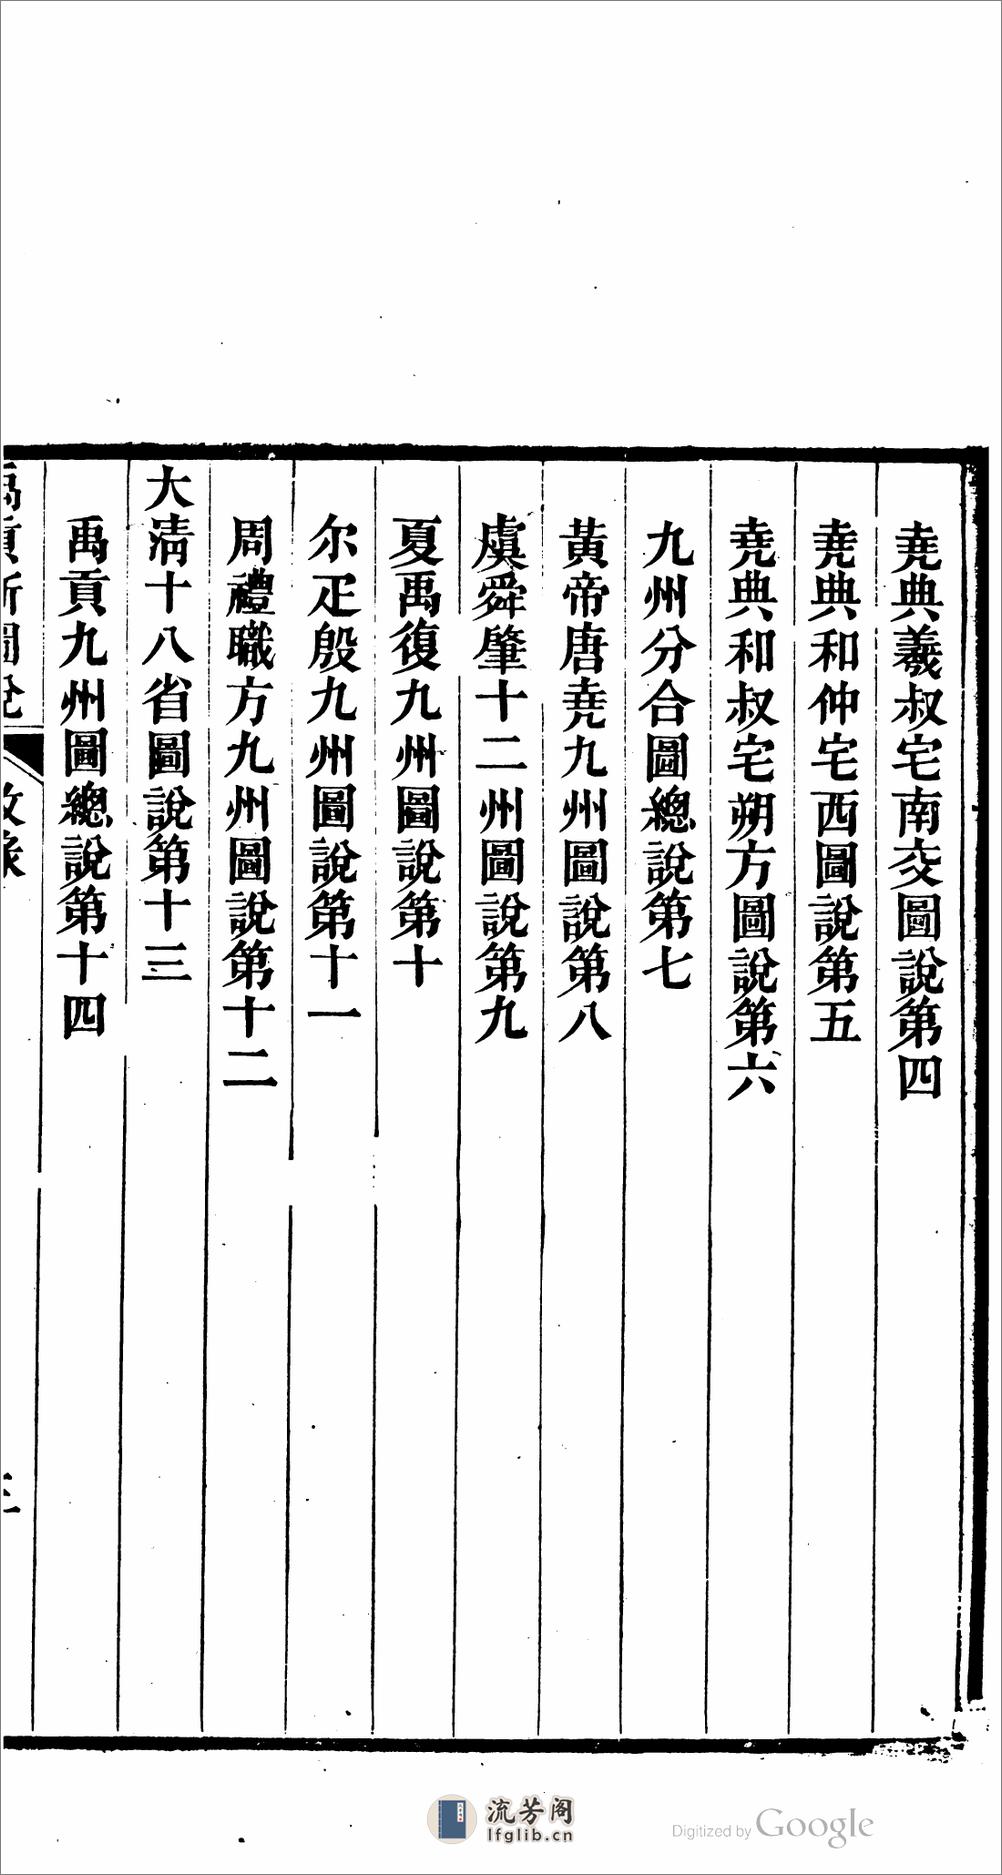 堯典羲叔宅南交圖說第四
堯典和仲宅西圖說第五
堯典和叔宅朔方圖說第六
九州分合圖總說第七
黃帝唐堯九州圖說第八
虞舜肇十二州圖說第九
夏禹復九州圖說第十
尔疋殷九州圖說第十一
周禮職方九州圖說第十二
大淸十八省圖說第十三
禹貢九州圖總說第十四
流芳阁
lfglib.cn
Digitized by Google